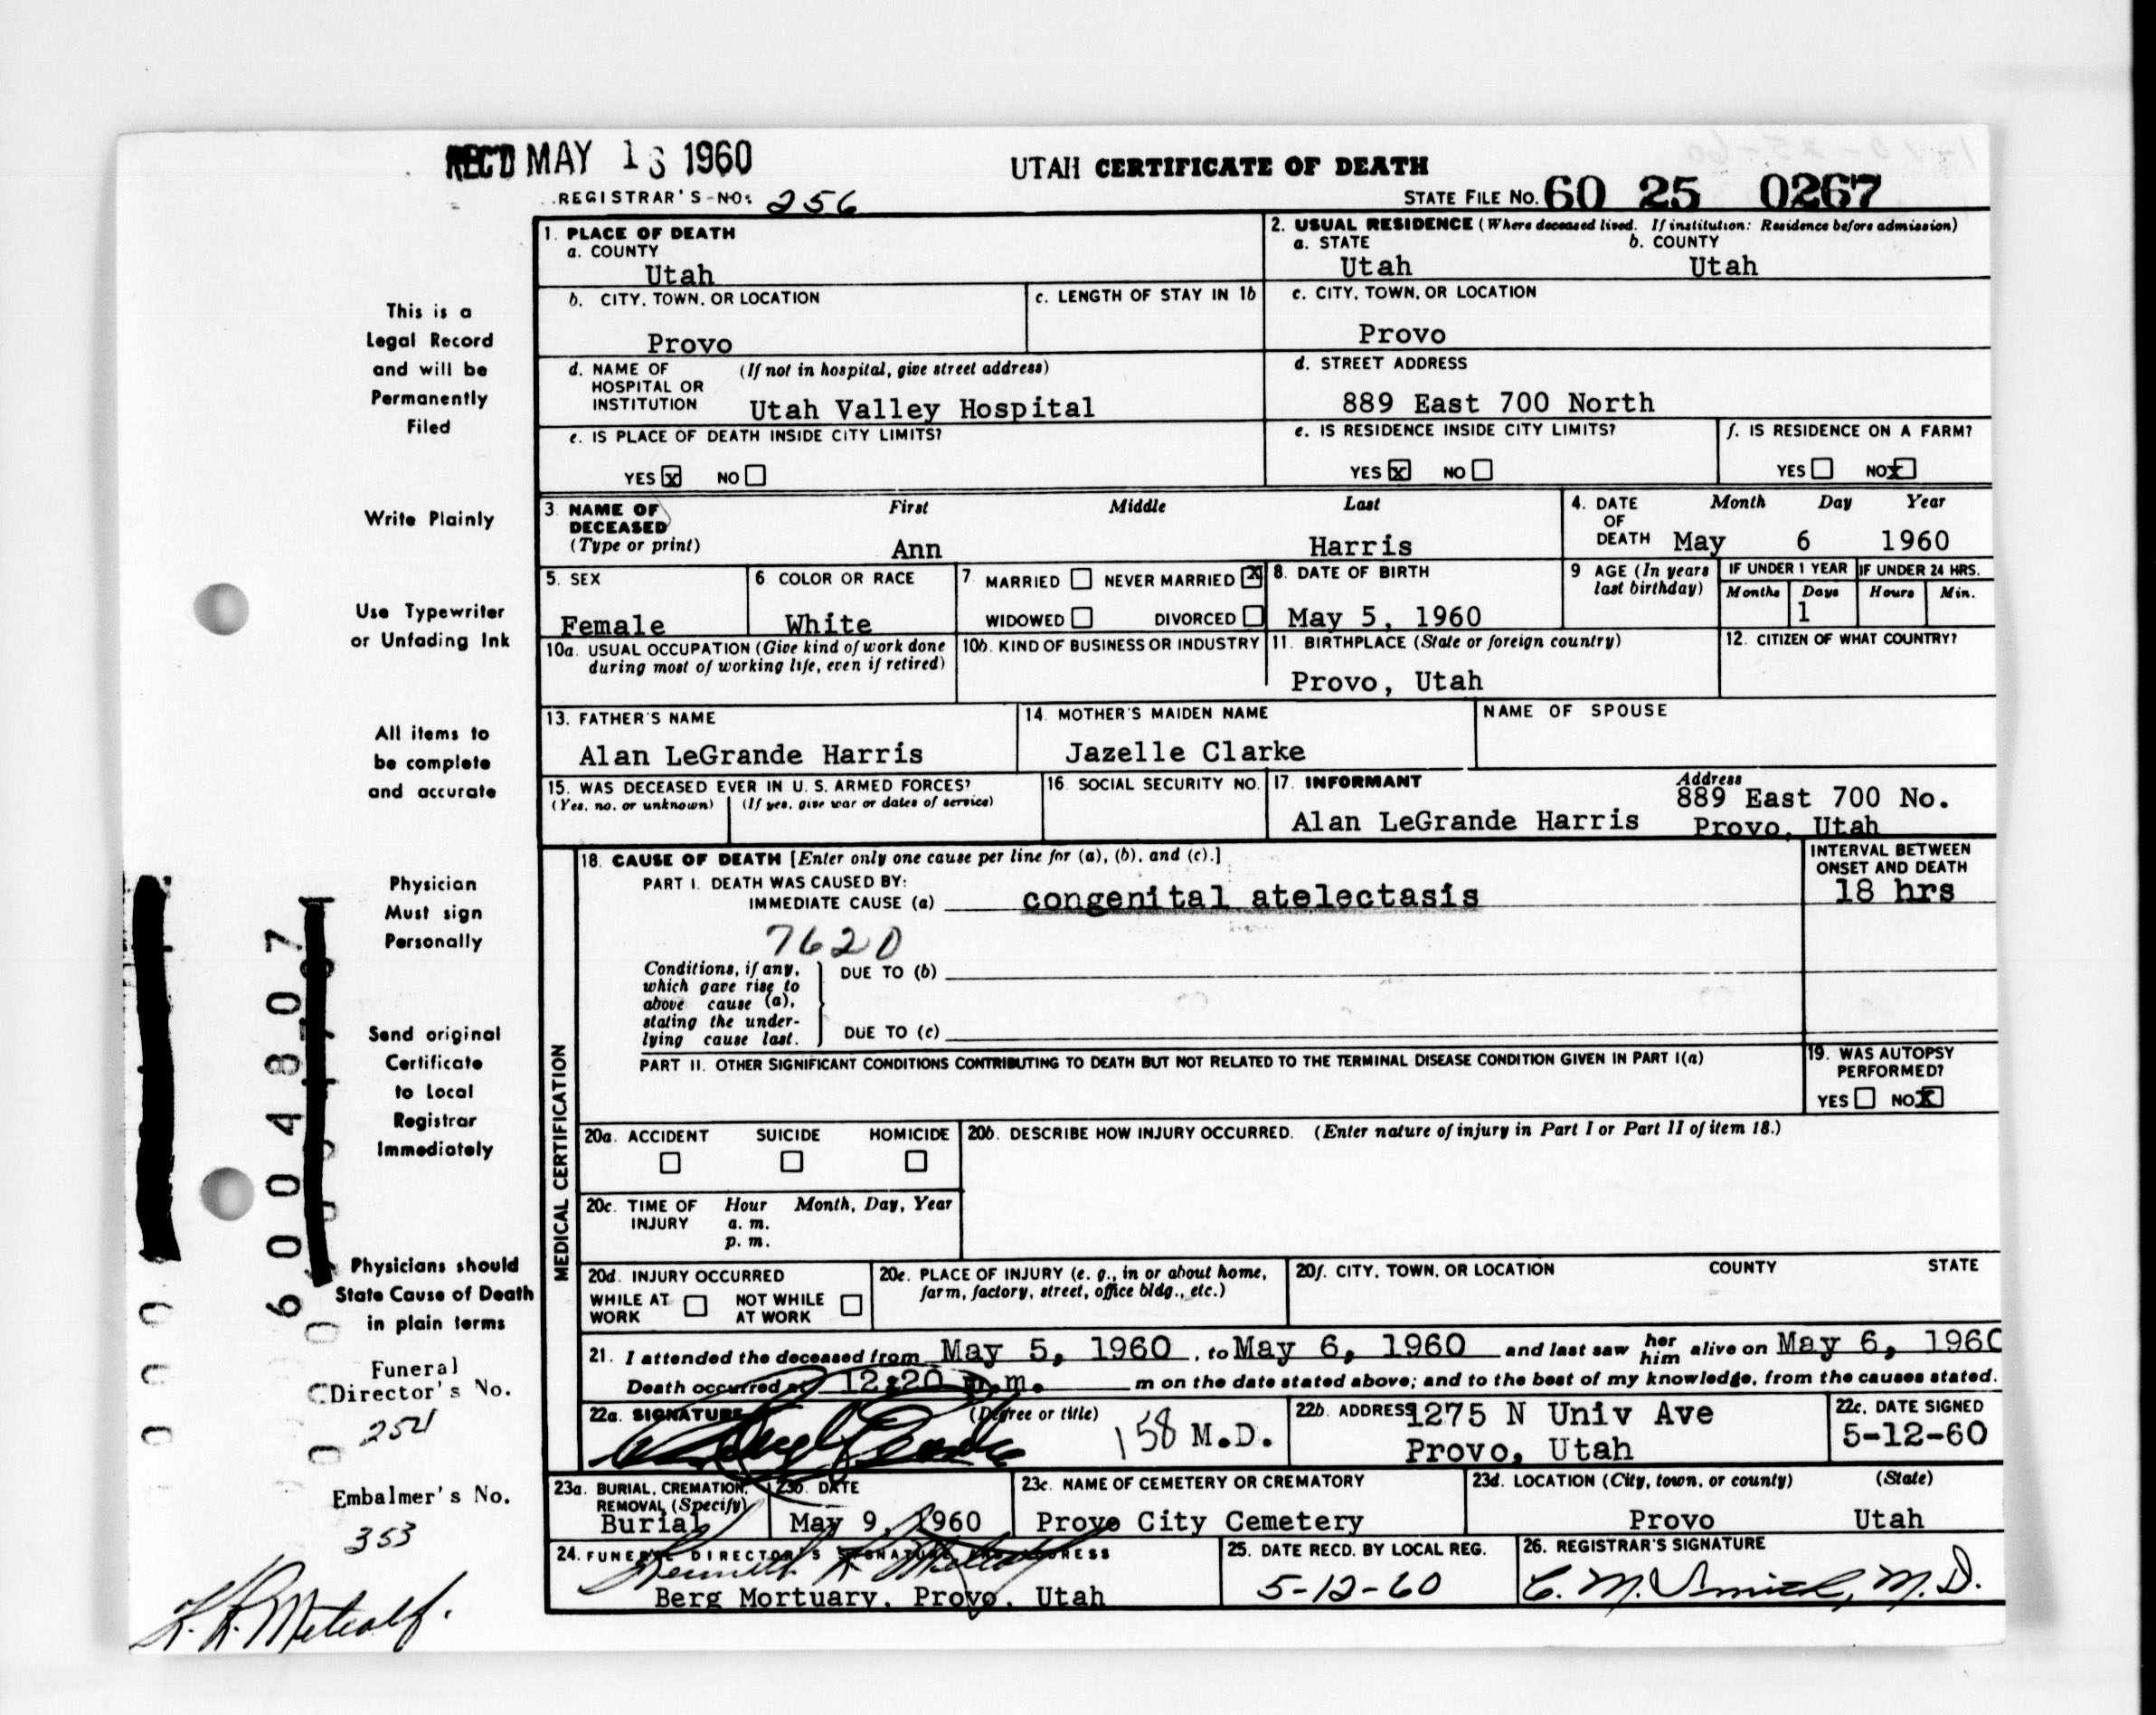 REC'D MAY 1 1960
UTAH CERTIFICATE OF DEATH
REGISTRAR'S NO: 256
STATE FILE NO. 60 25 0267
1. PLACE OF DEATH
a. COUNTY
Utah
2. USUAL RESIDENCE (Where deceased lived. If institution: Residence before admission)
a. STATE b. COUNTY
Utah Utah
b. CITY, TOWN, OR LOCATION
Provo
c. LENGTH OF STAY IN 1b
c. CITY, TOWN, OR LOCATION
Provo
d. NAME OF (If not in hospital, give street address)
HOSPITAL OR
INSTITUTION Utah Valley Hospital
d. STREET ADDRESS
889 East 700 North
e. IS PLACE OF DEATH INSIDE CITY LIMITS?
YES x NO
e. IS RESIDENCE INSIDE CITY LIMITS?
YES x NO
f. IS RESIDENCE ON A FARM?
YES NO x
3. NAME OF DECEASED (Type or print)
First Middle Last
Ann Harris
4. DATE OF DEATH
Month Day Year
May 6 1960
5. SEX
Female
6 COLOR OR RACE
White
7 MARRIED NEVER MARRIED x
WIDOWED DIVORCED
8. DATE OF BIRTH
May 5, 1960
9 AGE (In years last birthday)
IF UNDER 1 YEAR IF UNDER 24 HRS.
Months Days Hours Min.
1
10a. USUAL OCCUPATION (Give kind of work done
during most of working life, even if retired)
10b. KIND OF BUSINESS OR INDUSTRY
11. BIRTHPLACE (State or foreign country)
Provo, Utah
12. CITIZEN OF WHAT COUNTRY?
13. FATHER'S NAME
Alan LeGrande Harris
14. MOTHER'S MAIDEN NAME
Jazelle Clarke
NAME OF SPOUSE
15. WAS DECEASED EVER IN U. S. ARMED FORCES?
(Yes, no, or unknown) (If yes, give war or dates of service)
16. SOCIAL SECURITY NO.
17. INFORMANT Address
Alan LeGrande Harris 889 East 700 No.
Provo, Utah
MEDICAL CERTIFICATION
18. CAUSE OF DEATH [Enter only one cause per line for (a), (b), and (c).]
PART I. DEATH WAS CAUSED BY:
IMMEDIATE CAUSE (a) congenital atelectasis
INTERVAL BETWEEN
ONSET AND DEATH
18 hrs
7620
Conditions, if any,
which gave rise to
above cause (a),
stating the under-
lying cause last.
DUE TO (b)
DUE TO (c)
PART II. OTHER SIGNIFICANT CONDITIONS CONTRIBUTING TO DEATH BUT NOT RELATED TO THE TERMINAL DISEASE CONDITION GIVEN IN PART I(a)
19. WAS AUTOPSY
PERFORMED?
YES NO x
20a. ACCIDENT SUICIDE HOMICIDE
20b. DESCRIBE HOW INJURY OCCURRED. (Enter nature of injury in Part I or Part II of item 18.)
20c. TIME OF INJURY
Hour Month, Day, Year
a. m.
p. m.
20d. INJURY OCCURRED
WHILE AT WORK NOT WHILE AT WORK
20e. PLACE OF INJURY (e. g., in or about home,
farm, factory, street, office bldg., etc.)
20f. CITY, TOWN, OR LOCATION COUNTY STATE
21. I attended the deceased from May 5, 1960, to May 6, 1960 and last saw her him alive on May 6, 1960
Death occurred at 12:20 m. m on the date stated above; and to the best of my knowledge, from the causes stated.
22a. SIGNATURE (Degree or title)
158 M.D.
22b. ADDRESS 1275 N Univ Ave
Provo, Utah
22c. DATE SIGNED
5-12-60
23a. BURIAL, CREMATION,
REMOVAL (Specify)
Burial
23b. DATE
May 9, 1960
23c. NAME OF CEMETERY OR CREMATORY
Provo City Cemetery
23d. LOCATION (City, town, or county) (State)
Provo Utah
24. FUNERAL DIRECTOR'S SIGNATURE AND ADDRESS
Berg Mortuary, Provo, Utah
25. DATE RECD. BY LOCAL REG.
5-12-60
26. REGISTRAR'S SIGNATURE
C. M. Smith, M.D.
This is a
Legal Record
and will be
Permanently
Filed
Write Plainly
Use Typewriter
or Unfading Ink
All items to
be complete
and accurate
Physician
Must sign
Personally
Send original
Certificate
to Local
Registrar
Immediately
Physicians should
State Cause of Death
in plain terms
Funeral
Director's No.
254
Embalmer's No.
353
K. R. Metcalf.
6004807